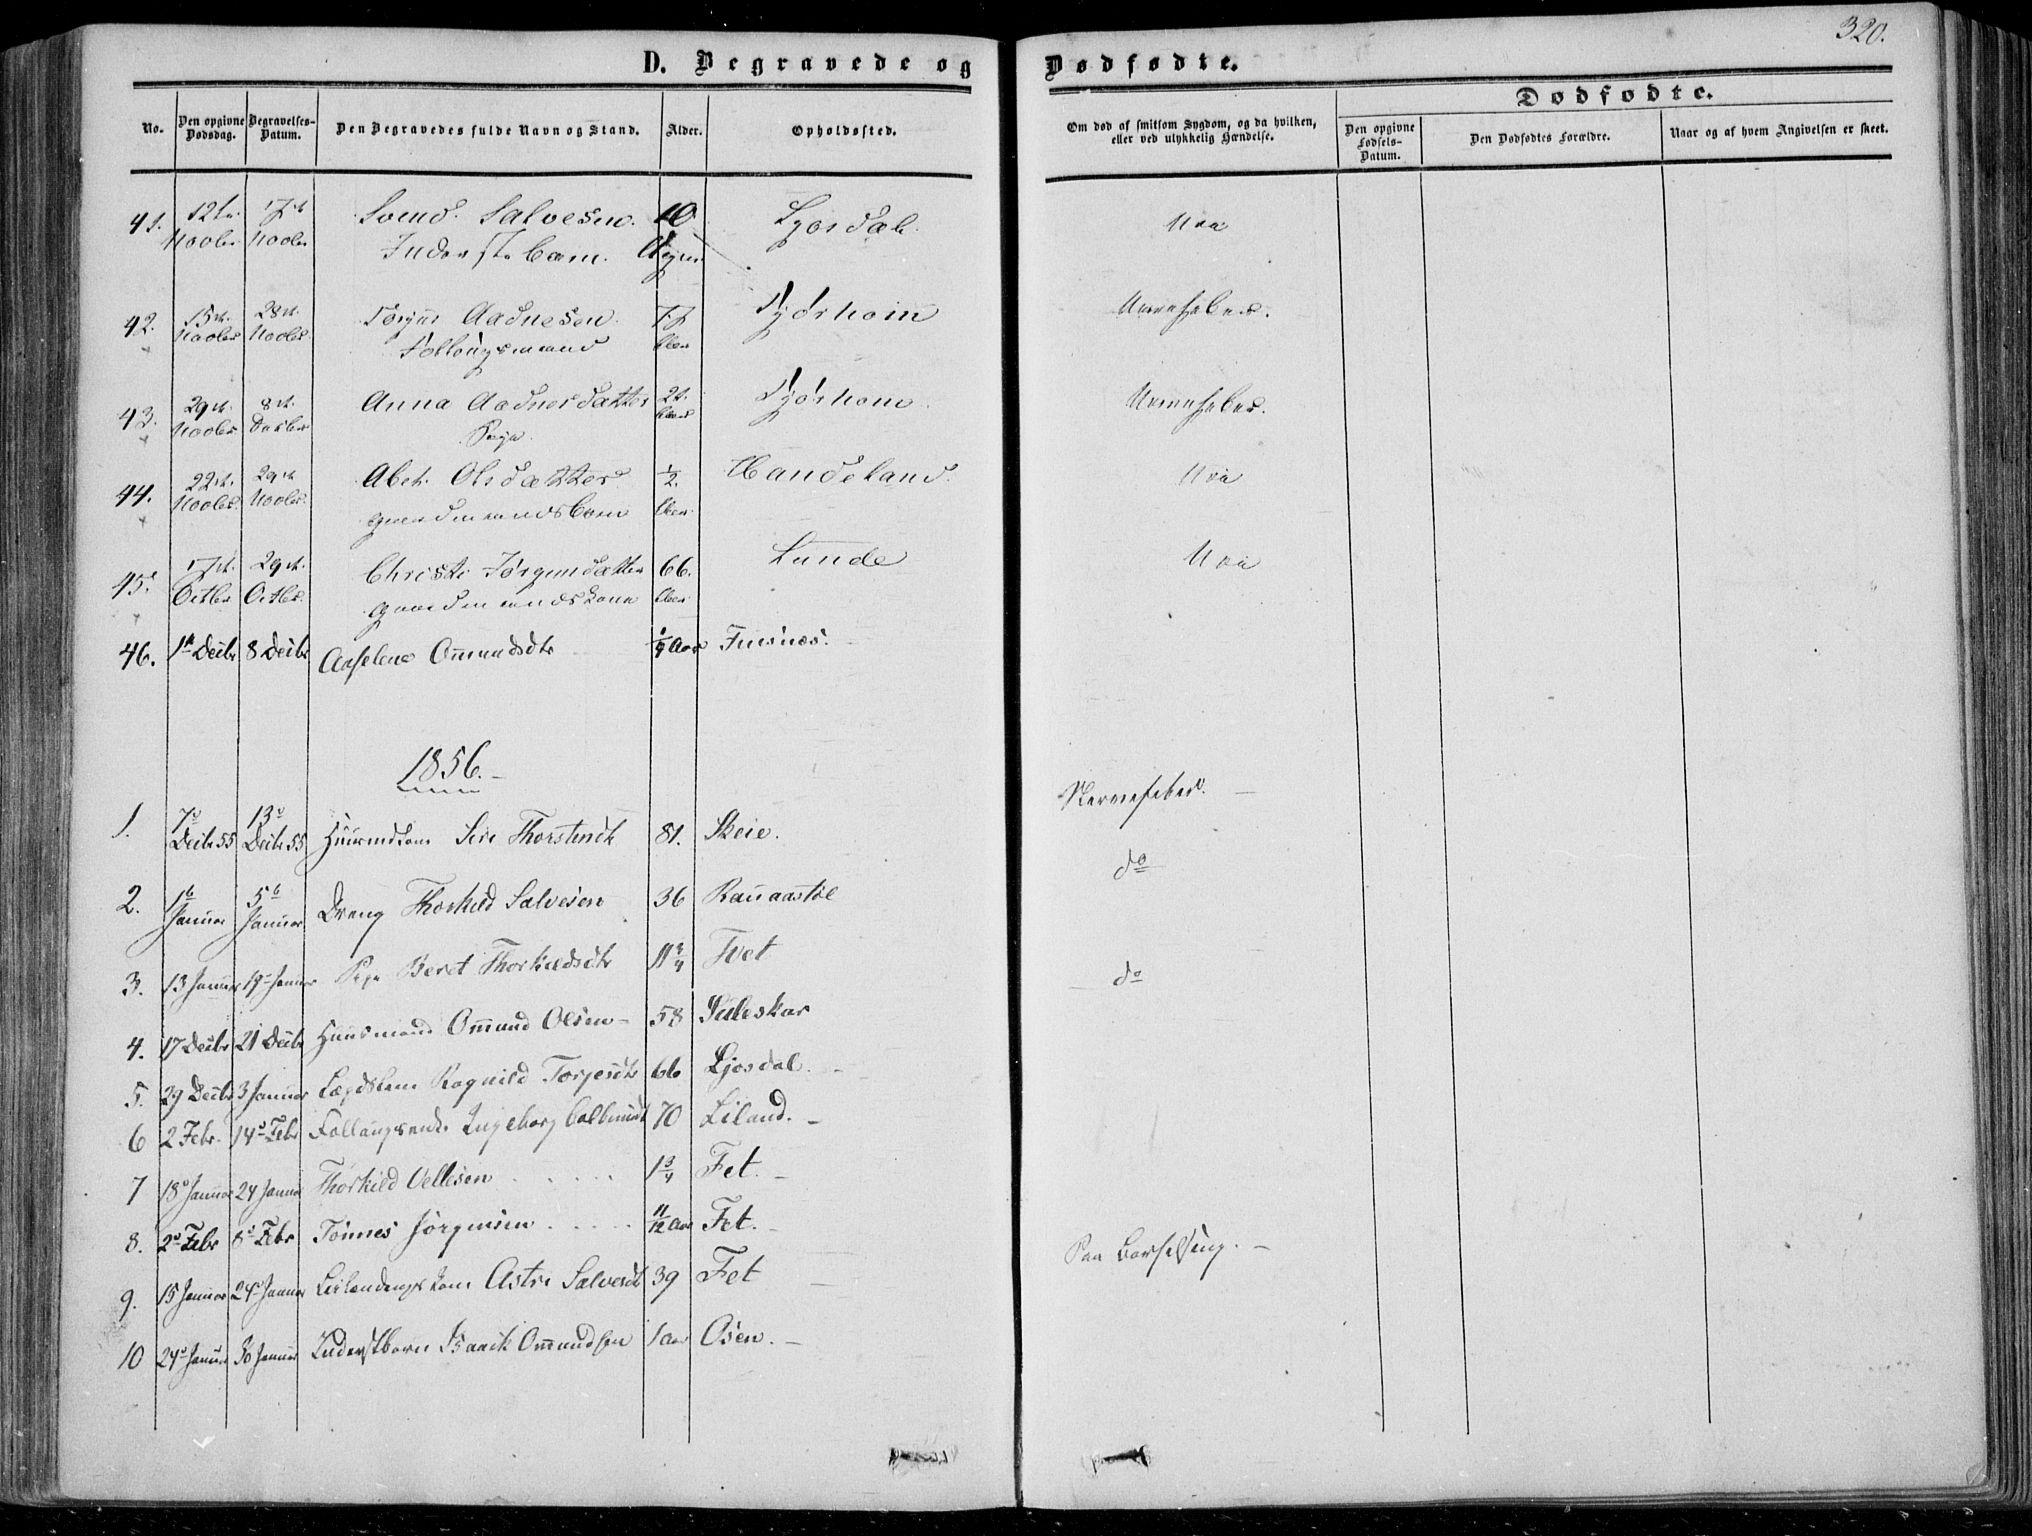 320.
D. Begravede og Dødfødte.
Dødfødte.
No. Den opgivne Dødsdag. Begravelses-Datum. Den Begravedes fulde Navn og Stand. Alder. Opholdssted. Om død af smitsom Sygdom, og da hvilken, eller ved ulykkelig Hændelse. Den opgivne Fødsels-Datum. Den Dødfødtes Forældre. Naar og af hvem Angivelsen er skeet.
41. 12te 17de Svend Salvesen. 10 Ljosdal.
Novbr Novbr Inderstebarn.
42. 15de 28de Aadnesen Tjørhom
Novbr Novbr Follougsmand Aar
43. 29de 8de Anna Aadnesdatter 24 Tjørhom
Novbr Decbr Pige Aar
44. 22de 29de Abet Olsdatter 1/2 Haudeland.
Novbr. Novbr. gaardmandsbarn Aar
45. 17de 29de Christi Jørgensdatter 66. Lunde
Octbr Octbr. gaardmandskone Aar
46. 1st Decbr 8 Decbr Aaselene Omundsdtr 1/4 Aar Fusnæs.
1856.
1. 7de 13de Nervefeber.
Decbr 55 Decbr 55 Huusmdkone Siri Thorstensdtr 81. Skeie.
2. 1ste 5te do
Januar Januar Dreng Thorkild Salvesen 36 Raunaastøl
3. 13 Januar 19 Januar Pige Beret Thorkildsdtr 11 3/4 Tvet do
4. 17 Decbr 21 Decbr Huusmand Omund Olsen 58 Suleskar
5. 29 Decbr 3 Januar Lægdslem Ragnild Torjesdtr 66 Ljosdal.
6 2 Febr. 14de Febr Follougsenke Ingeborg 70 Liland.
7 18de Januar 24 Januar Thorkild Vellesen 1 3/4 Fet.
8. 2de Febr 8de Febr Tønnes Jørgensen 11/12 Aar Fet.
9. 15 Januar 24de Januar Leilændingskone Astri Salvesdtr 39 Fet Paa Barselseng.
10 24de Januar 30 Januar Inderstbarn Isaack Omundsen 1 Aar Osen.